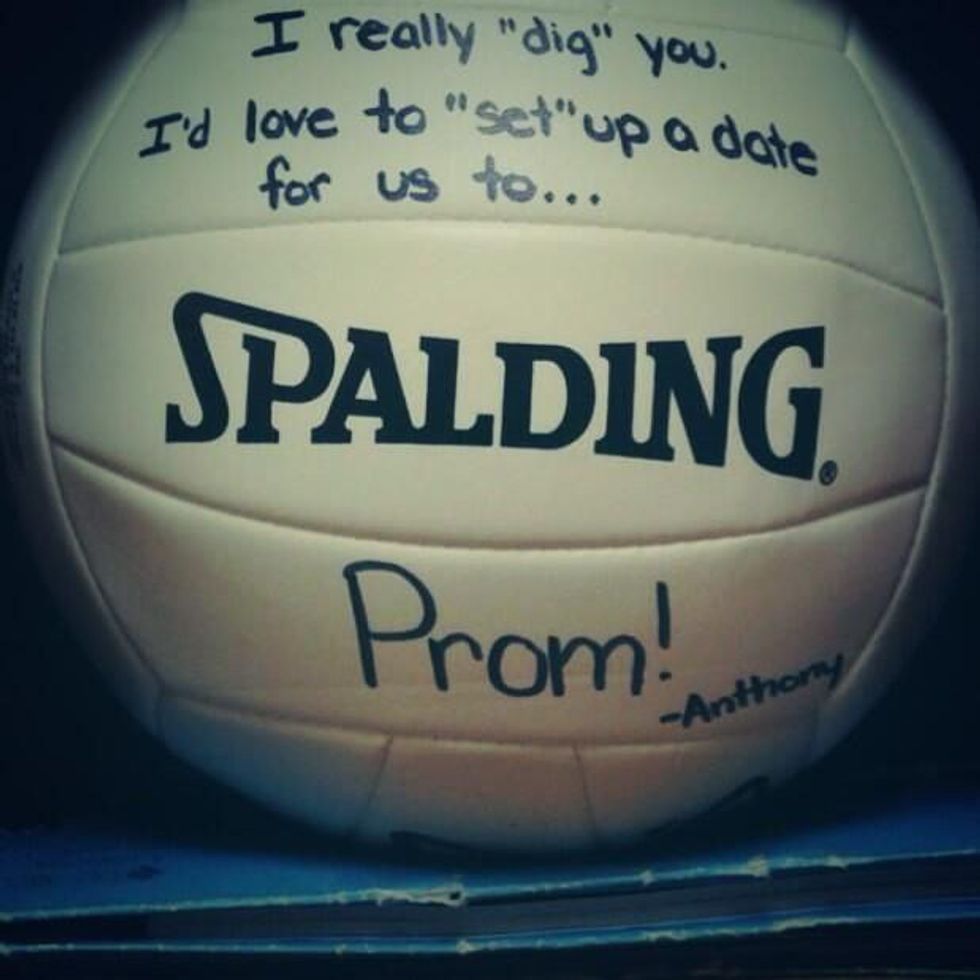 I really "dig" you.
I'd love to "set" up a date
for us to...
SPALDING®
Prom!
-Anthony